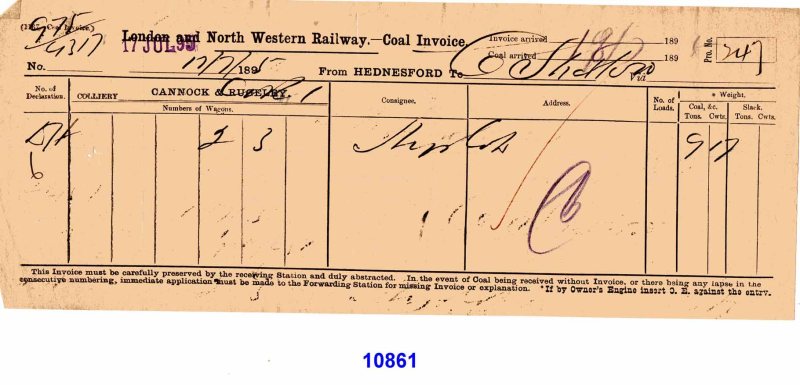 London and North Western Railway.—Coal Invoice.
17 JUL 95
Invoice arrived 189
Coal arrived 189
Pro. No. 247
No. 17/7/1895 From HEDNESFORD To Via
No. of Declaration.
COLLIERY CANNOCK & RUGELEY.
Numbers of Wagons.
Consignee.
Address.
No. of Loads.
* Weight.
Coal, &c. Slack.
Tons. Cwts. Tons. Cwts.
2 3
9 17
6
This Invoice must be carefully preserved by the receiving Station and duly abstracted. In the event of Coal being received without Invoice, or there being any lapse in the
consecutive numbering, immediate application must be made to the Forwarding Station for missing Invoice or explanation. *If by Owner's Engine insert O. E. against the entry.
10861